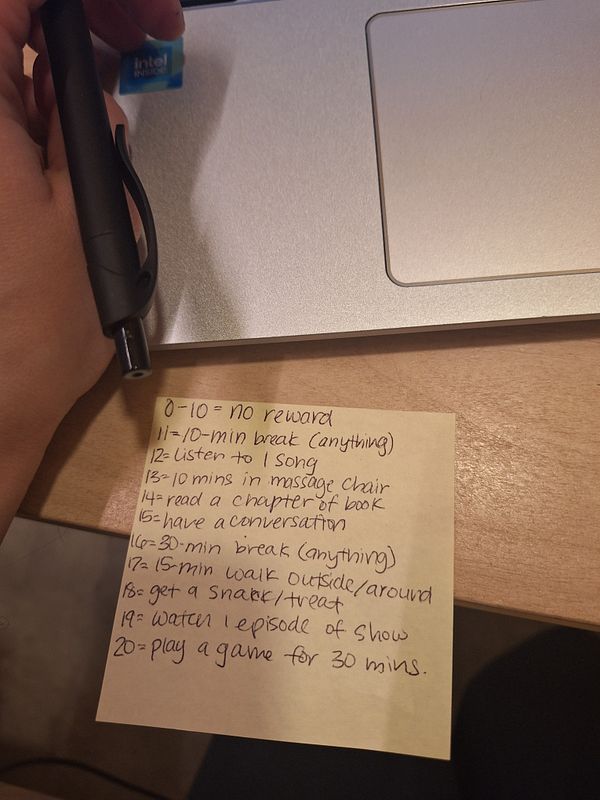 intel
INSIDE
0-10 = no reward
11=10-min break (anything)
12= Listen to 1 song
13=10 mins in massage chair
14= read a chapter of book
15= have a conversation
16=30-min break (anything)
17= 15-min walk outside/around
18= get a snack/treat
19= watch 1 episode of show
20= play a game for 30 mins.